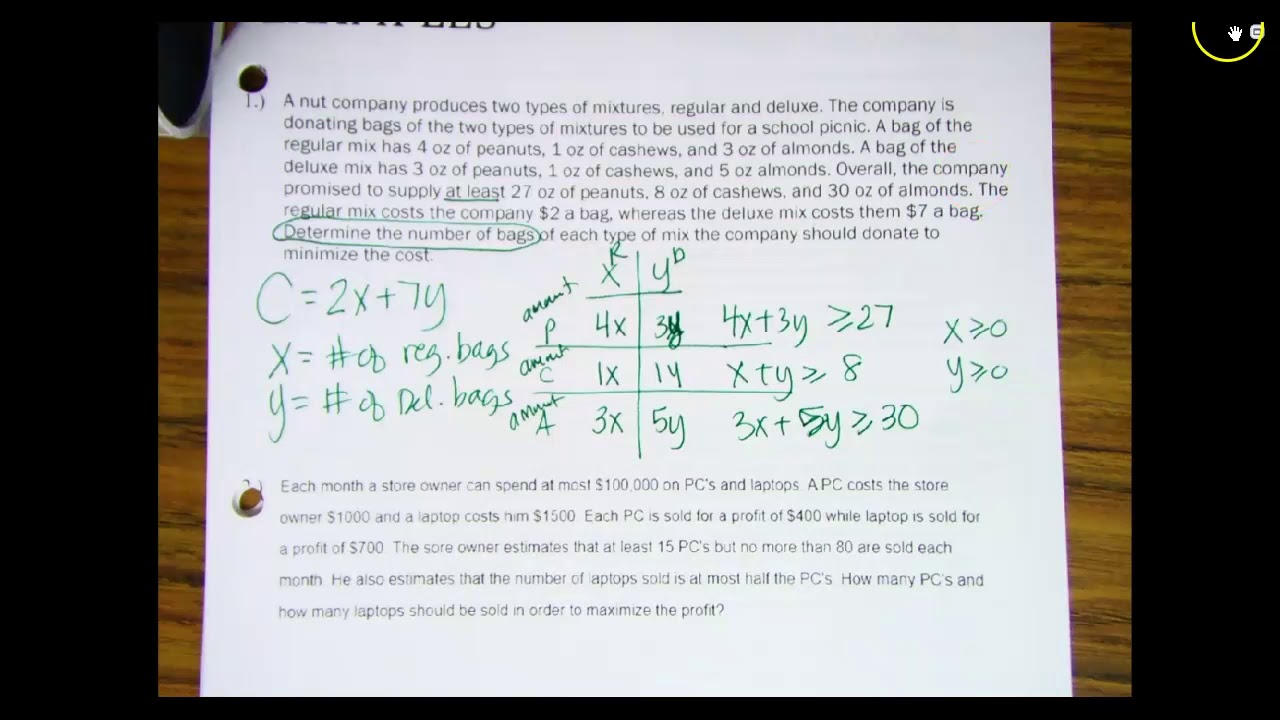 1.) A nut company produces two types of mixtures, regular and deluxe. The company is
donating bags of the two types of mixtures to be used for a school picnic. A bag of the
regular mix has 4 oz of peanuts, 1 oz of cashews, and 3 oz of almonds. A bag of the
deluxe mix has 3 oz of peanuts, 1 oz of cashews, and 5 oz almonds. Overall, the company
promised to supply at least 27 oz of peanuts, 8 oz of cashews, and 30 oz of almonds. The
regular mix costs the company $2 a bag, whereas the deluxe mix costs them $7 a bag.
Determine the number of bags of each type of mix the company should donate to
minimize the cost.
R D
x y
C = 2x + 7y
amount P 4x 3y 4x + 3y ≥ 27 x ≥ 0
x = # of reg. bags
amount C 1x 1y x + y ≥ 8 y ≥ 0
y = # of Del. bags
amount A 3x 5y 3x + 5y ≥ 30
Each month a store owner can spend at most $100,000 on PC's and laptops. A PC costs the store
owner $1000 and a laptop costs him $1500. Each PC is sold for a profit of $400 while laptop is sold for
a profit of $700. The sore owner estimates that at least 15 PC's but no more than 80 are sold each
month. He also estimates that the number of laptops sold is at most half the PC's. How many PC's and
how many laptops should be sold in order to maximize the profit?